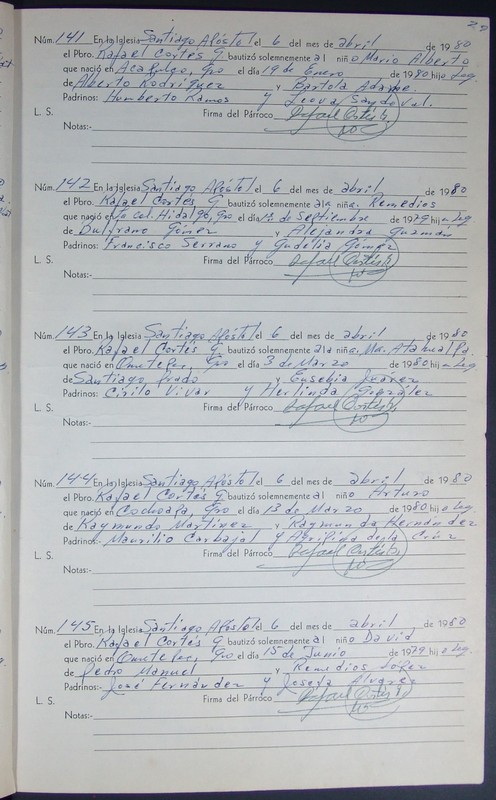 29
Núm. 141 En la Iglesia Santiago Apóstol el 6 del mes de abril de 1980
el Pbro. Rafael Cortés G bautizó solemnemente al niño Mario Alberto
que nació en Acapulco, Gro el día 19 de Enero de 1980 hijo Leg.
de Alberto Rodríguez y Bartola Adame.
Padrinos: Humberto Ramos y Leova Sandoval.
L. S. Firma del Párroco Rafael Cortés G.
Notas:-
Núm. 142 En la Iglesia Santiago Apóstol el 6 del mes de abril de 1980
el Pbro. Rafael Cortés G bautizó solemnemente a la niña. Remedios
que nació en col. Hidalgo, Gro el día 1º de Septiembre de 1979 hija Leg
de Gómez y Alejandra Guzmán
Padrinos: Francisco Serrano y Gudelia Gómez
L. S. Firma del Párroco Rafael Cortés G.
Notas:-
Núm. 143 En la Iglesia Santiago Apóstol el 6 del mes de abril de 1980
el Pbro. Rafael Cortés G. bautizó solemnemente a la niña. Ma.
que nació en Ometepec, Gro el día 3 de Marzo de 1980 hija Leg
de Santiago Prado y Eusebia
Padrinos: Cirilo Vivar y Herlinda González
L. S. Firma del Párroco Rafael Cortés G.
Notas:-
Núm. 144 En la Iglesia Santiago Apóstol el 6 del mes de abril de 1980
el Pbro. Rafael Cortés G bautizó solemnemente al niño Arturo
que nació en Cochoapa, Gro el día 13 de Marzo de 1980 hijo Leg.
de Raymundo Martínez y Raymunda Hernández
Padrinos. Maurilio Carbajal y de la Cruz
L. S. Firma del Párroco Rafael Cortés G.
Notas:-
Núm. 145 En la Iglesia Santiago Apóstol el 6 del mes de abril, de 1980
el Pbro. Rafael Cortés G. bautizó solemnemente al niño David
que nació en Ometepec, Gro el día 15 de Junio de 1979 hijo Leg.
de Pedro Manuel y Remedios López
Padrinos:- José Fernández y Josefa Alvarez
L. S. Firma del Párroco Rafael Cortés G.
Notas:-